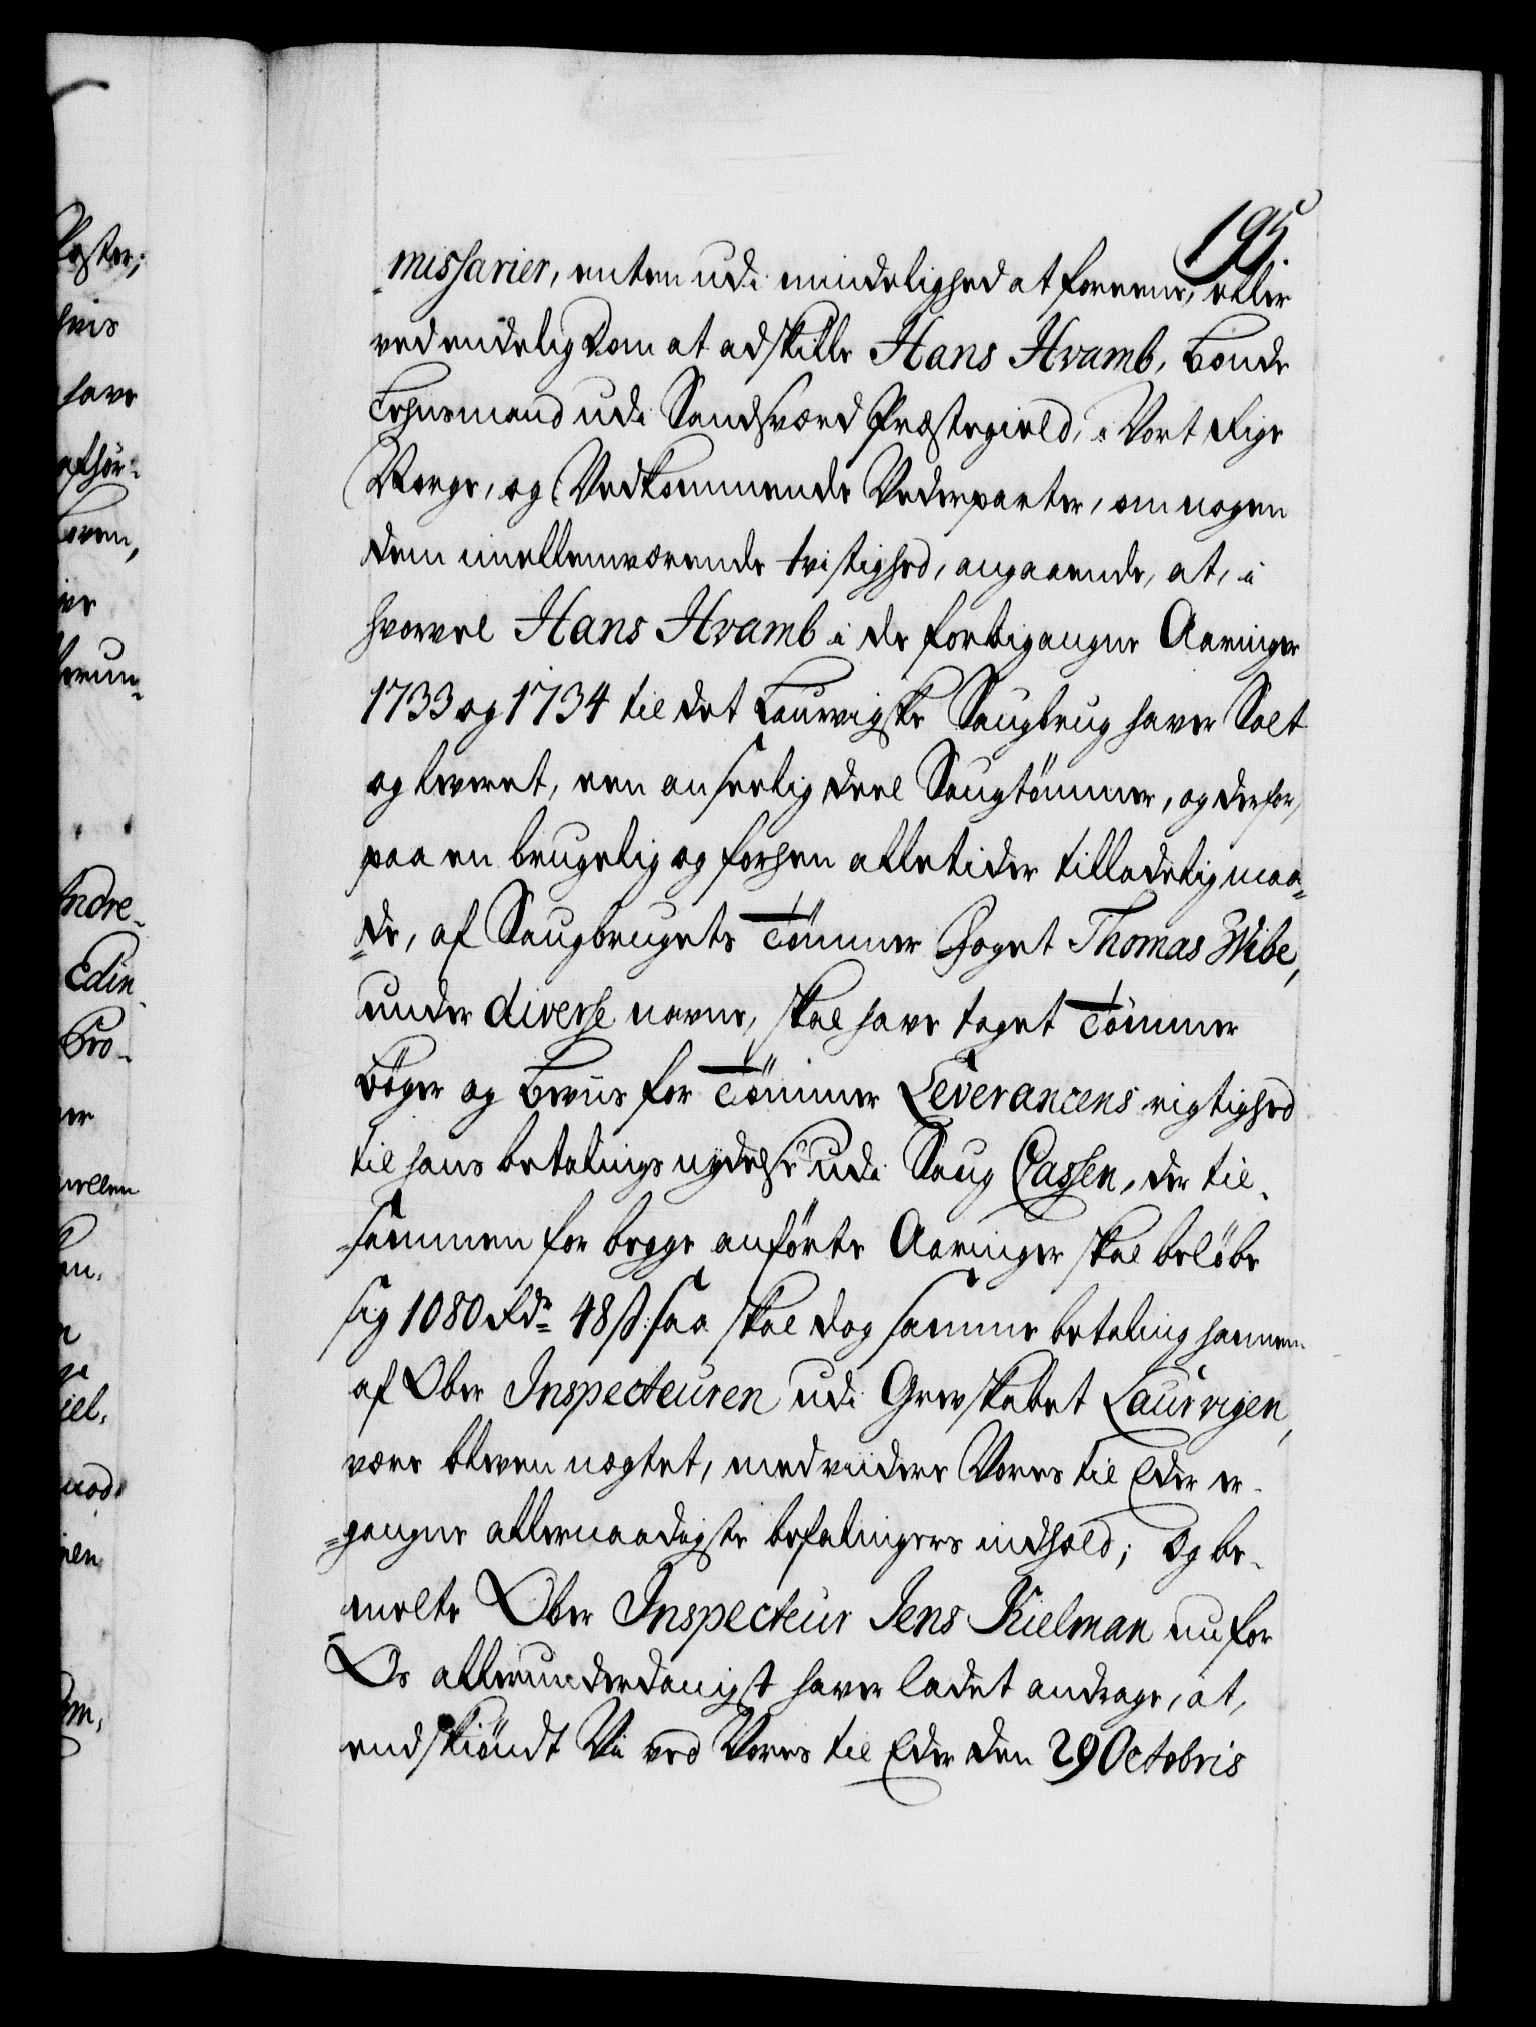 195.
-missarier, enten udi mindelighed at foreene, eller
ved endelig Dom at adskille Hans Hvamb, Bonde
Lehnsmand udi Sandsværd Præstegield, i Vort Rige
Norge, og Vedkommende Vederparter, om nogen
dem imellemværende tvistighed, angaaende, at, i
hvorvel Hans Hvamb i de forbigangne Aaringer
1733 og 1734 til det Laurvigske Saugbrug haver Solt
og leveret, een anseelig deel Saugtømmer, og derfor,
paa en brugelig og forhen alletider tilladelig maa-
-de, af Saugbrugets Tömmer Foget Thomas Wibe,
under diverse navne, skal have taget Tömmer
Bøger og Beviis for Tömmer Leverancens rigtighed
til hans betalings nydelse udi Saug Cassen, der til-
-sammen for begge anförte Aaringer skal belöbe
sig 1080 Rdr 48 ß: saa skal dog samme betaling hannem
af Ober Inspecteuren udi Grevskabet Laurvigen,
være bleven nægtet, med viidere Vores til Eder er-
-gangne allernaadigste befalingers indhold; Og be-
-melte Ober Inspecteur Jens Kielman nu for
Os allerunderdanigst haver ladet andrage, at,
endskiöndt Vi ved Vores til Eder den 29 Octobris